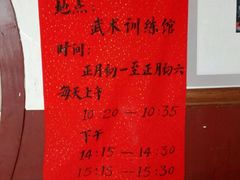 地点：
武术训练馆
时间：
正月初一至正月初六
每天上午
10:20—10:35
下午
14:15—14:30
15:15—15:30